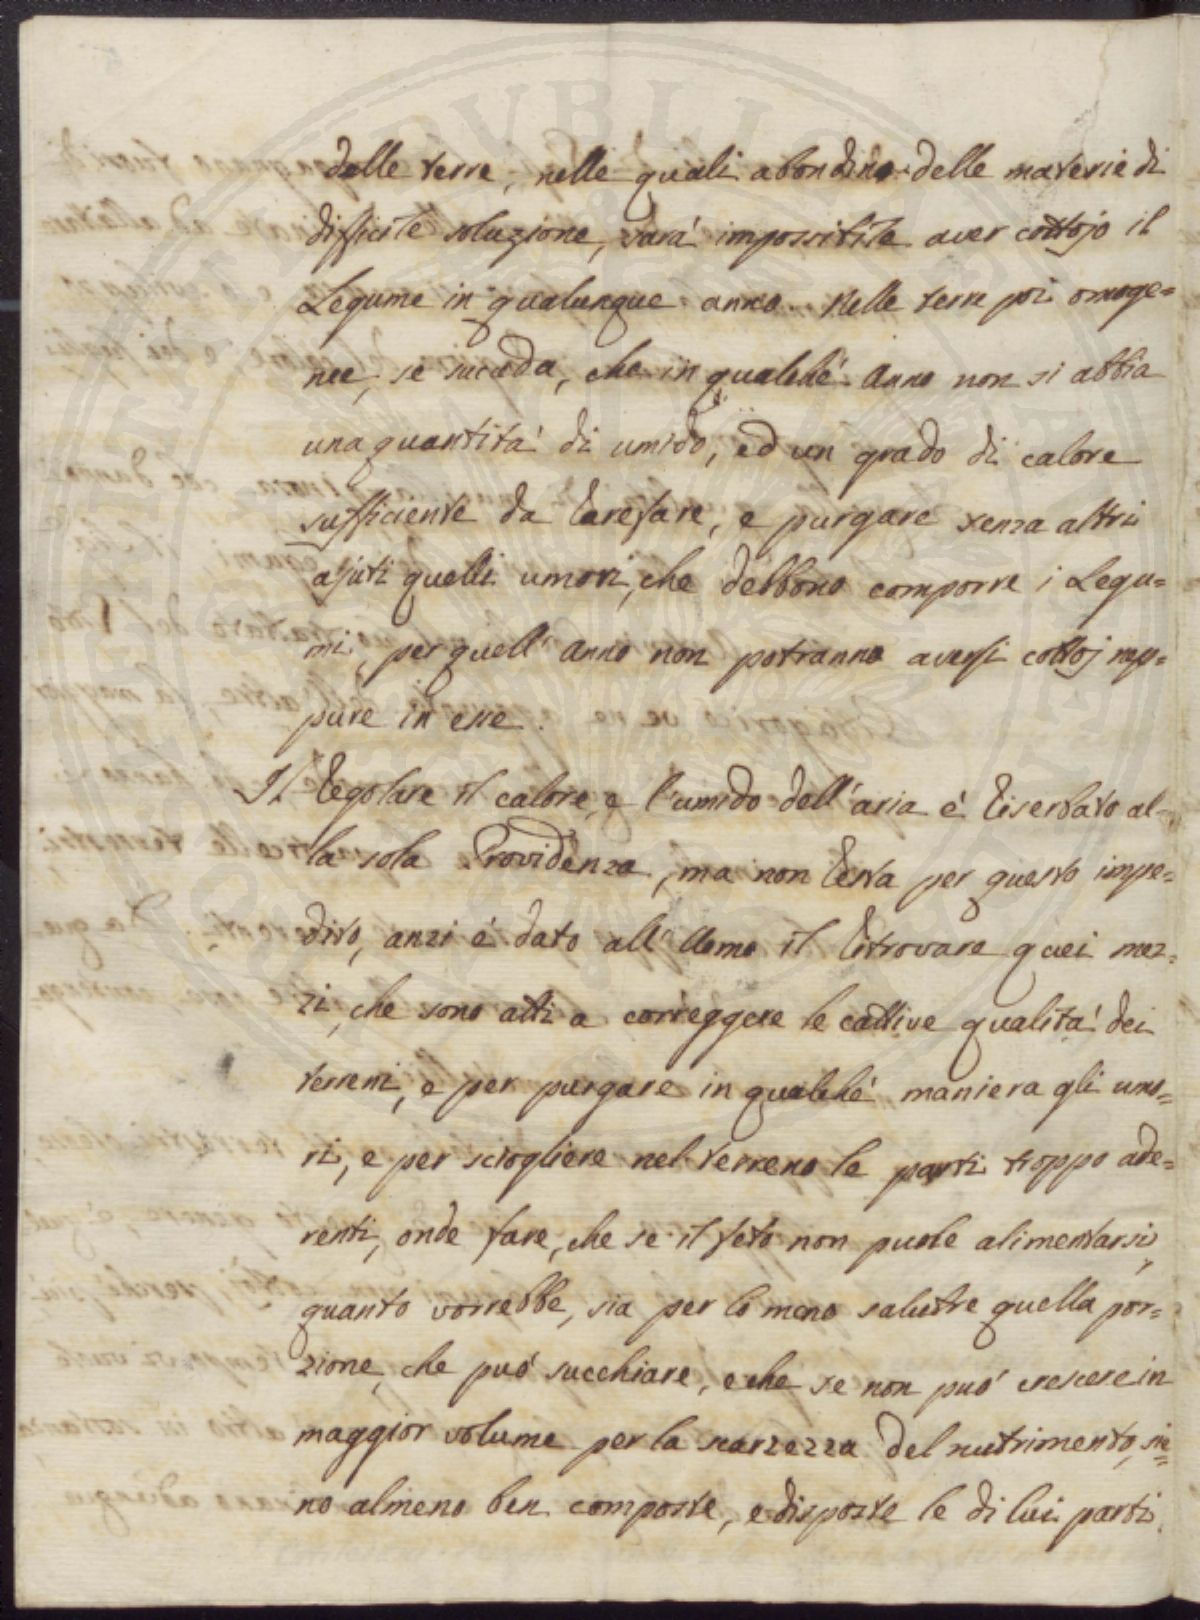 delle terre, nelle quali abondino delle materie di
difficile soluzione, sarà impossibile aver cottojo il
Legume in qualunque anno. Nelle terre poi omoge=
nee, se succeda, che in qualche anno non si abbia
una quantità di umido, ed un grado di calore
sufficiente da rarefare, e purgare senza altri
ajuti quelli umori, che debbono comporre i Legu=
mi, per quell'anno non potranno aversi cottoj nep=
pure in esse.
Il regolare il calore, e l'umido dell'aria è riserbato al=
la sola Providenza, ma non resta per questo impe=
dito, anzi è dato all'Uomo il ritrovare quei mez=
zi, che sono atti a correggere le cattive qualità dei
terreni, e per purgare in qualchè maniera gli umo=
ri, e per sciogliere nel terreno le parti troppo ade=
renti, onde fare, che se il feto non puole alimentarsi
quanto vorrebbe, sia per lo meno salubre quella por=
zione, che può succhiare, e che se non può crescere in
maggior volume per la scarzezza del nutrimento, sie=
no almeno ben composte, e disposte le di lui parti